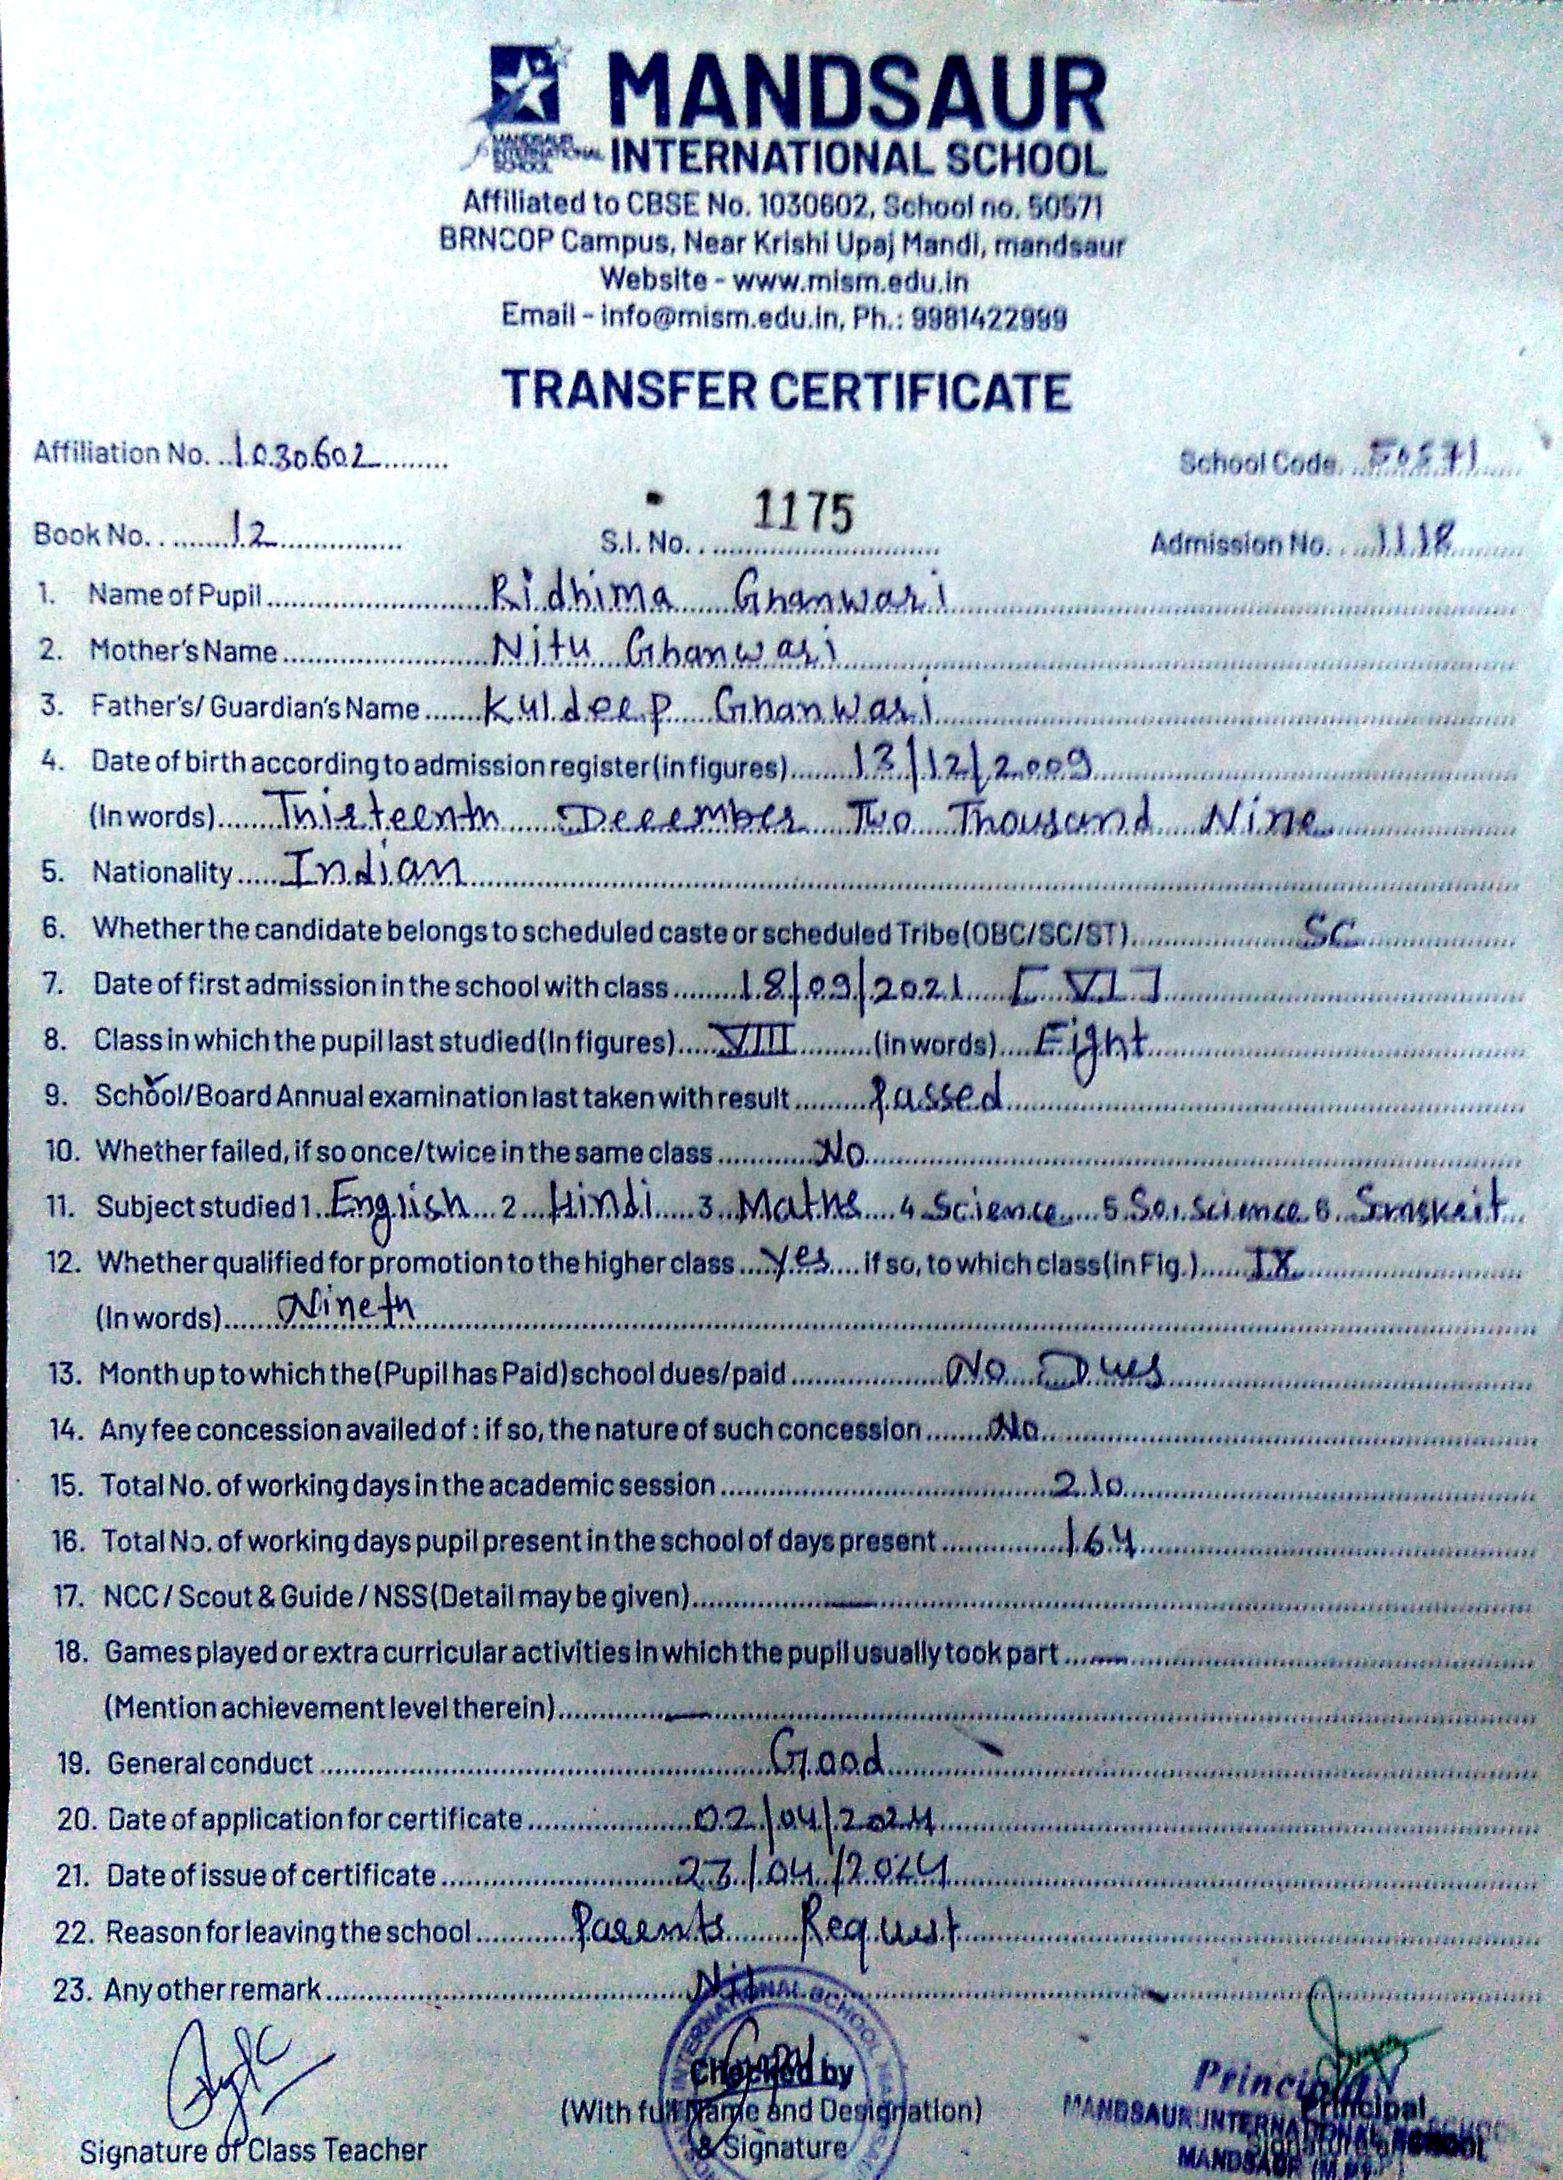 MANDSAUR
INTERNATIONAL SCHOOL
MANDSAUR
INTERNATIONAL
SCHOOL
Affiliated to CBSE No. 1030602, School no. 50571
BRNCOP Campus, Near Krishi Upaj Mandi, mandsaur
Website - www.mism.edu.in
Email - info@mism.edu.in, Ph.: 9981422999
TRANSFER CERTIFICATE
Affiliation No. 1030602 School Code 50571
Book No. 12 S.I. No. 1175 Admission No. 1118
1. Name of Pupil Ridhima Ghanwari
2. Mother's Name Nitu Ghanwari
3. Father's/ Guardian's Name Kuldeep Ghanwari
4. Date of birth according to admission register (in figures) 13/12/2009
(In words) Thirteenth December Two Thousand Nine
5. Nationality Indian
6. Whether the candidate belongs to scheduled caste or scheduled Tribe (OBC/SC/ST) SC
7. Date of first admission in the school with class 18/09/2021 [VI]
8. Class in which the pupil last studied (In figures) VIII (in words) Eight
9. School/Board Annual examination last taken with result Passed
10. Whether failed, if so once/twice in the same class No
11. Subject studied 1. English 2 Hindi 3 Maths 4 Science 5 So. Science 6 Smskrit
12. Whether qualified for promotion to the higher class Yes if so, to which class (in Fig.) IX
(In words) Nineth
13. Month up to which the (Pupil has Paid) school dues/paid No Dues
14. Any fee concession availed of : if so, the nature of such concession No
15. Total No. of working days in the academic session 210
16. Total No. of working days pupil present in the school of days present 164
17. NCC / Scout & Guide / NSS (Detail may be given) —
18. Games played or extra curricular activities in which the pupil usually took part —
(Mention achievement level therein) —
19. General conduct Good
20. Date of application for certificate 02/04/2024
21. Date of issue of certificate 23/04/2024
22. Reason for leaving the school Parents Request
23. Any other remark Nil
INTERNATIONAL SCHOOL
Checked by
(With full Name and Designation)
& Signature
Signature of Class Teacher
Principal
Principal
MANDSAUR INTERNATIONAL SCHOOL
MANDSAUR (M.P.)